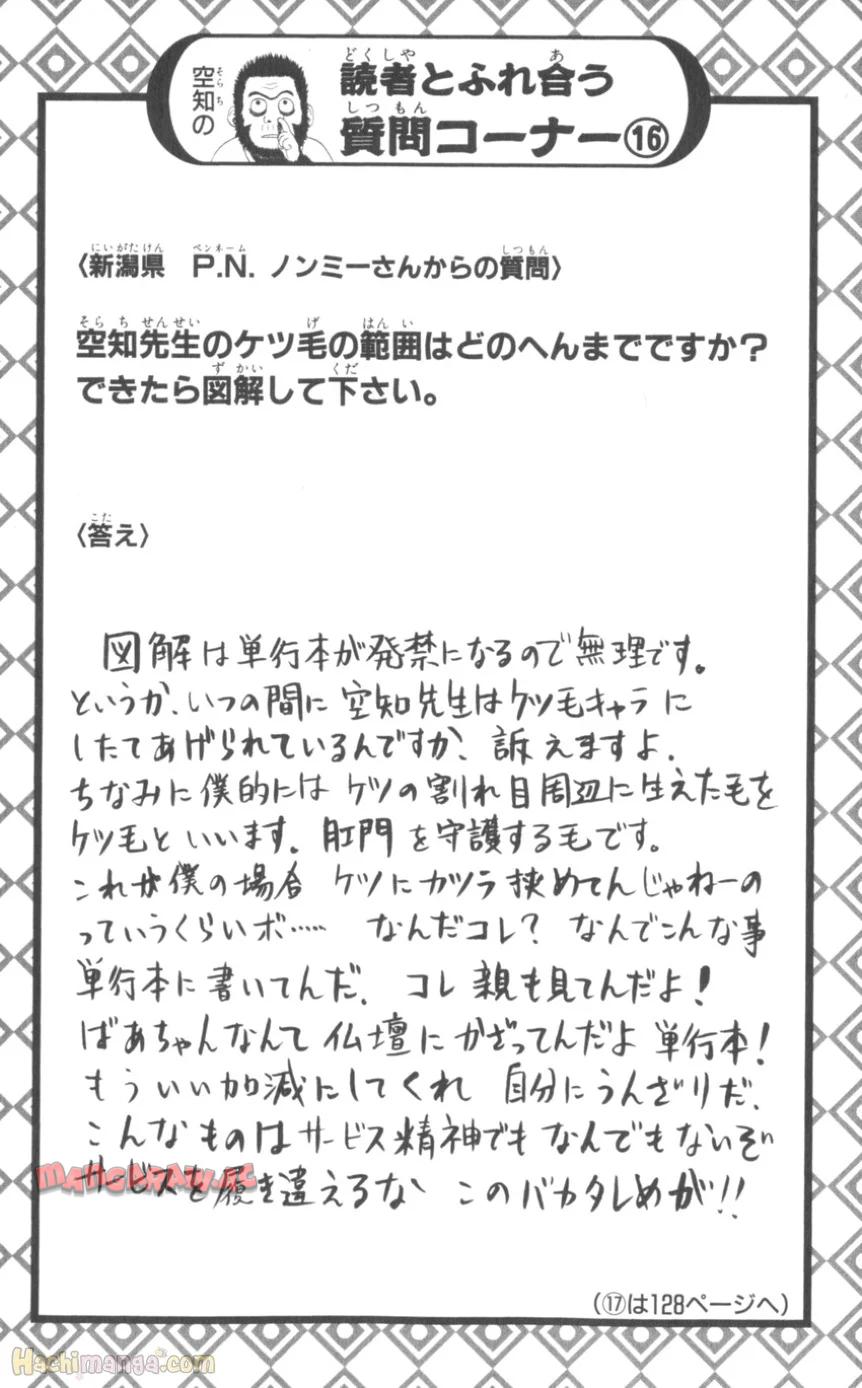 空知の
読者とふれ合う
質問コーナー⑯
〈新潟県　P.N. ノンミーさんからの質問〉
空知先生のケツ毛の範囲はどのへんまでですか？
できたら図解して下さい。
〈答え〉
図解は単行本が発禁になるので無理です。
というか、いつの間に空知先生はケツ毛キャラに
したてあげられているんですか、訴えますよ。
ちなみに僕的にはケツの割れ目周辺に生えた毛を
ケツ毛といいます。肛門を守護する毛です。
これが僕の場合 ケツにカツラ挟めてんじゃねーの
っていうくらいボ…… なんだコレ？ なんでこんな事
単行本に書いてんだ、 コレ親も見てんだよ！
ばあちゃんなんて仏壇にかざってんだよ 単行本！
もういい加減にしてくれ 自分にうんざりだ、
こんなものはサービス精神でもなんでもないぞ
サービスを履き違えるな このバカタレめが!!
（⑰は128ページへ）
MANGARAW.AC
Hachimanga.com